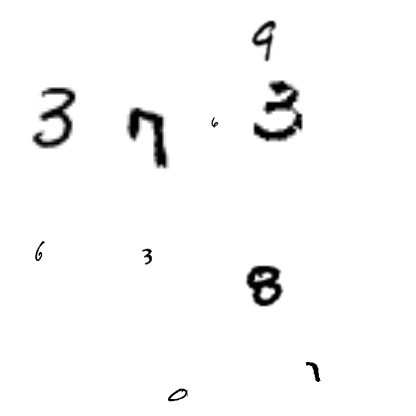 9
3 7 6 3
6 3
8
7
0